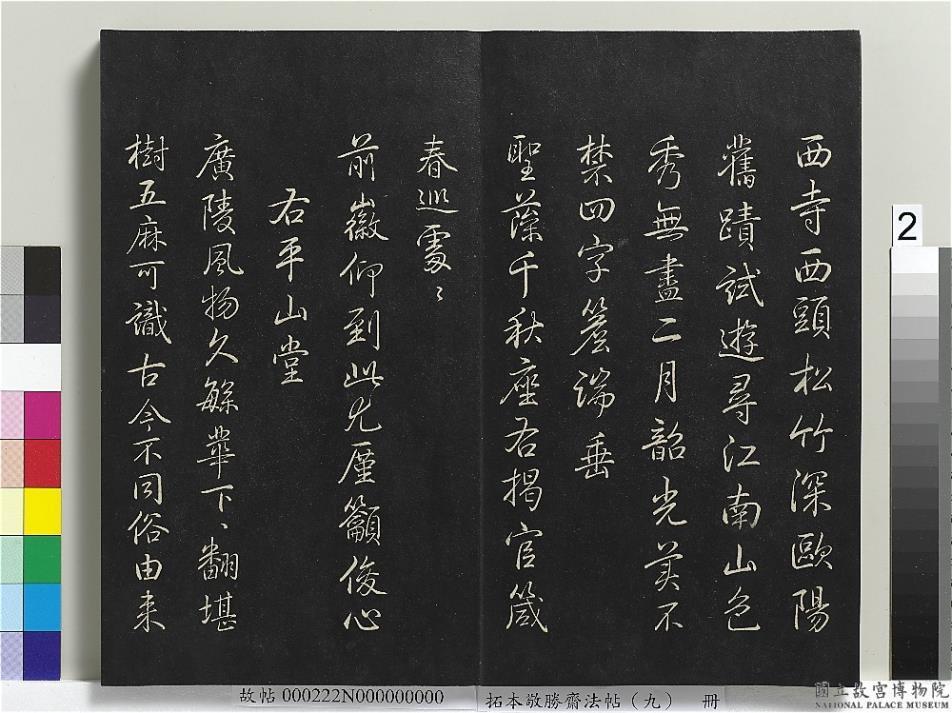 西寺西頭松竹深歐陽
舊蹟試遊尋江南山色
秀無盡二月韶光美不
禁四字簷端垂
聖藻千秋座右揭官箴
春巡處〻
前徽仰到此尤廑籲俊心
右平山堂
廣陵風物久緐華下〻翻堪
樹五麻可識古今不同俗由来
2
故帖 000222N000000000
拓本敬勝齋法帖（九） 冊
國立故宮博物院
NATIONAL PALACE MUSEUM